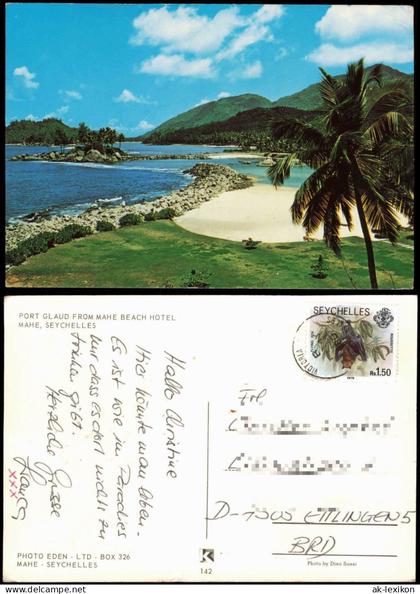 PORT GLAUD FROM MAHE BEACH HOTEL
MAHE, SEYCHELLES
Hallo Christine
Hier könnte man leben.
Es ist wie im Paradies
nur dass es dort nichts zu
trinken gibt.
Herzliche Grüsse
xxx
PHOTO EDEN - LTD - BOX 326
MAHE - SEYCHELLES
K
142
VICTORIA
SEYCHELLES
1978
Rs1.50
Frl
D-7505 ETTLINGEN 5
BRD
Photo by Dino Sassi
© ak-ansichtskarten.de